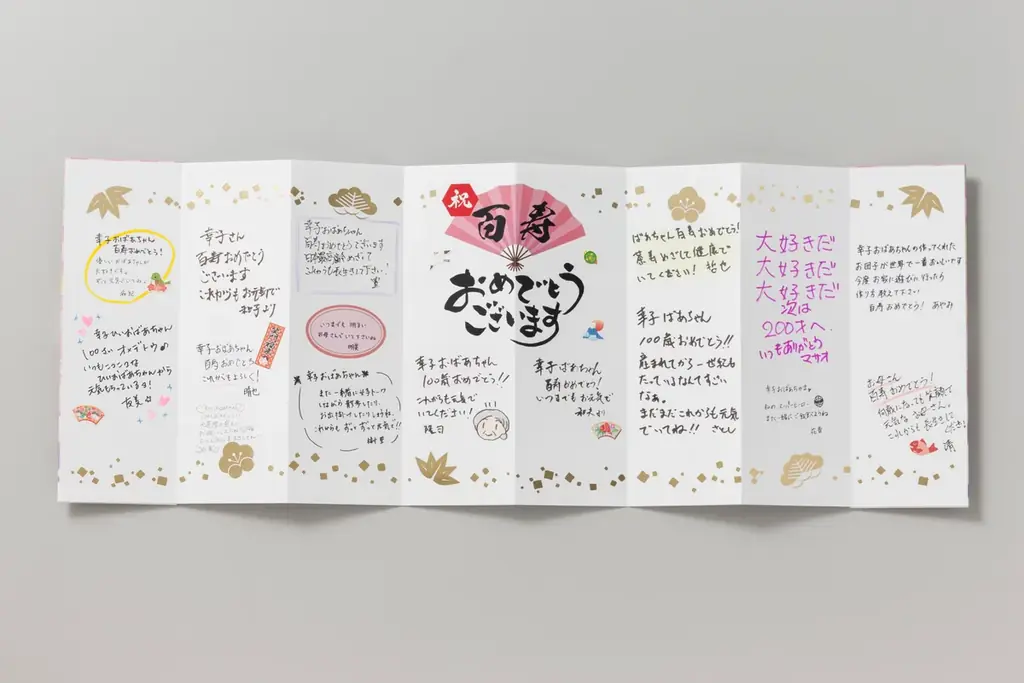 幸子おばあちゃん
百寿おめでとう!
幸子ひいおばあちゃん
100さい オメデトウ♪
いつもニコニコな
ひいおばあちゃんから
元気もらっているヨ!
友美
幸子さん
百寿おめでとう
ございます
これからもお元気で
より
幸子おばあちゃん
百寿おめでとう
これからもよろしく!
幸子おばあちゃん
百寿おめでとうございます
日本最高齢めざして
これからも長生きして下さい!
いつまでも 明るい
お母さんでいて下さいね
幸子おばあちゃん
また一緒に
しながら 散歩したり、
お出掛けしたりしようね。
これからも ずっとずっと大好き!!
樹里
祝
百寿
おめでとう
ございます
幸子おばあちゃん
100歳おめでとう!!
これからも元気で
いてください!
陽日
幸子ばあちゃん
百寿おめでとう!
いつまでもお元気で
和夫より
ばあちゃん百寿おめでとう!
茶寿めざして健康で
いてください! 哲也
幸子ばあちゃん
100歳おめでとう!!
産まれてから一世紀も
たっているなんてすごい
なぁ。
まだまだこれからも元気
でいてね!! さとし
大好きだ
大好きだ
大好きだ
次は
200才へ.
いつもありがとう
マサオ
幸子おばあちゃんは
私の、スーパーヒーロー
また一緒にご飯食べようね
幸子おばあちゃんの作ってくれた
お団子が世界で一番おいしいです
今度 お家に遊びに行ったら
作り方教えて下さい
百寿おめでとう! あやみ
お母さん
百寿おめでとう!
何歳になっても笑顔で
元気なお母さん。
これからも長生きして
ください!
清